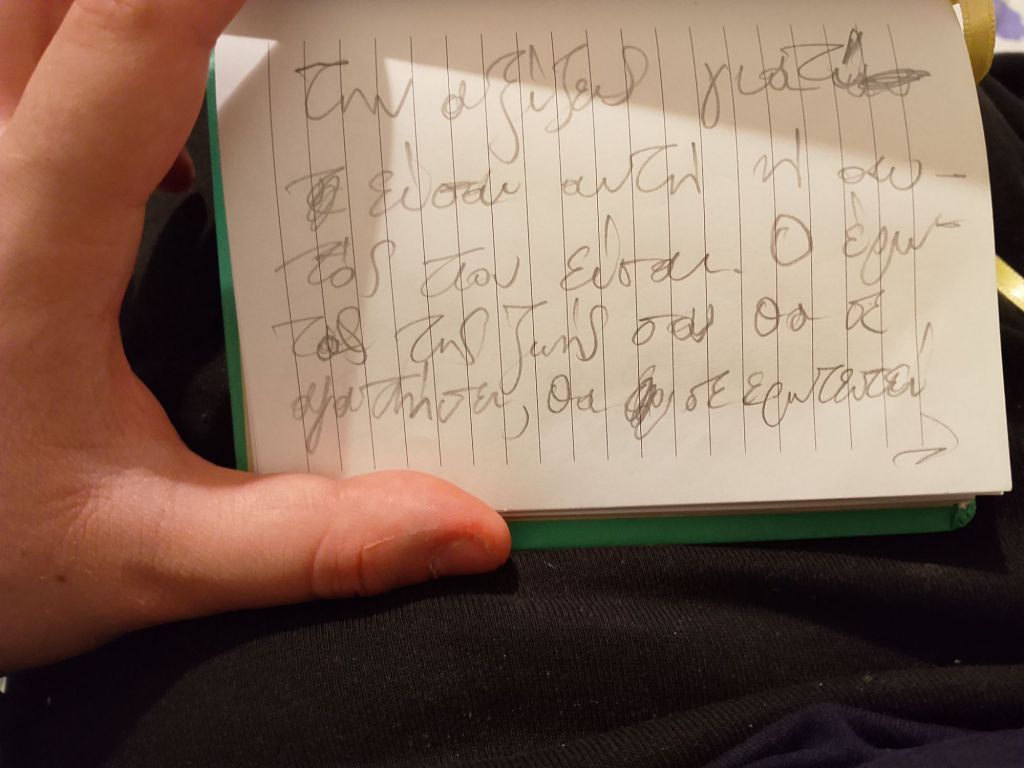 την αξίζεις γιατί
είσαι αυτή ή αυ-
τός που είσαι. Ο έρω-
τας της ζωής σου θα σε
αγαπήσει, θα σε ερωτευτεί,